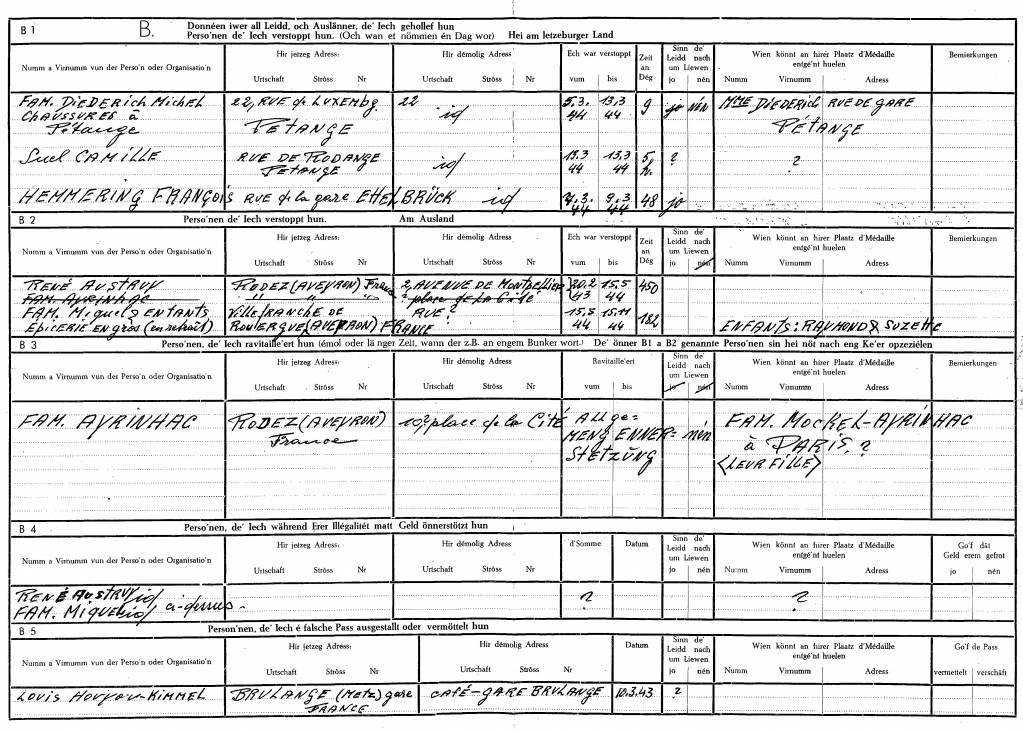 B 1
B.
Donnéen iwer all Leidd, och Auslänner, de' Iech gehollef hun
Perso'nen de' Iech verstoppt hun. (Och wan et nömmen én Dag wor) Hei am letzeburger Land
Numm a Virnumm vun der Perso'n oder Organisatio'n
Hir jetzeg Adress:
Urtschaft Ströss Nr
Hir démolig Adress
Urtschaft Ströss Nr
Ech war verstoppt
vum bis
Zeit an Dég
Sinn de' Leidd nach um Liewen
jo nén
Wien könnt an hirer Plaatz d'Médaille entgé'nt huelen
Numm Virnumm Adress
Bemierkungen
FAM. DIEDERICH MICHEL 22, RUE de LUXEMBg. 22 id 5.3. 44 13.3 44 9 jo nén MME DIEDERICH RUE DE GARE
CHAUSSURES à PETANGE PÉTANGE
Pétange
Suel CAMILLE RUE DE RODANGE id 13.3 44 13.3 44 5 h. ? ?
PETANGE
HEMMERING FRANÇOIS RUE de la gare ETTELBRÜCK id 7.3. 44 9.3 44 48 jo
B 2
Perso'nen de' Iech verstoppt hun. Am Ausland
Numm a Virnumm vun der Perso'n oder Organisatio'n
Hir jetzeg Adress:
Urtschaft Ströss Nr
Hir démolig Adress
Urtschaft Ströss Nr
Ech war verstoppt
vum bis
Zeit an Dég
Sinn de' Leidd nach um Liewen
jo nén
Wien könnt an hirer Plaatz d'Médaille entgé'nt huelen
Numm Virnumm Adress
Bemierkungen
RENÉ AUSTRUY RODEZ (AVEYRON) France 2, AVENUE DE Montpellier 20.2 43 15.5 44 450
FAM. AYRINHAC " " " ? place de la Cité
FAM. Miquel & ENFANTS Villefranche de RUE? 15.5 44 15.11 44 182
Epicerie en gros (en retrait) ROUERGUE (AVEYRON) FRANCE ENFANTS: RAYMOND & SUZETTE
B 3
Perso'nen, de' Iech ravitaille'ert hun (émol oder lä nger Zeit, wann der z.B. an engem Bunker wort.) De' önner B1 a B2 genannte Perso'nen sin hei nöt nach eng Ke'er opzezielen
Numm a Virnumm vun der Perso'n oder Organisatio'n
Hir jetzeg Adress:
Urtschaft Ströss Nr
Hir démolig Adress
Urtschaft Ströss Nr
Ravitaille'ert
vum bis
Sinn de' Leidd nach um Liewen
jo nén
Wien könnt an hirer Plaatz d'Médaille entgé'nt huelen
Numm Virnumm Adress
Bemierkungen
FAM. AYRINHAC RODEZ (AVEYRON) 10? place de la Cité Allge= FAM. MOCKEL-AYRINHAC
France MENG ENNER= nén à PARIS. ?
STETZŪNG (LEUR FILLE)
B 4
Perso'nen, de' Iech während Erer Illégalitét matt Geld önnerstötzt hun
Numm a Virnumm vun der Perso'n oder Organisatio'n
Hir jetzeg Adress:
Urtschaft Ströss Nr
Hir démolig Adress
Urtschaft Ströss Nr
d'Somme
Datum
Sinn de' Leidd nach um Liewen
jo nén
Wien könnt an hirer Plaatz d'Médaille entgé'nt huelen
Numm Virnumm Adress
Go'f dát Geld erem gefrot
jo nén
RENÉ AUSTRUY id ? ?
FAM. MIQUEL id ci-dessus -
B 5
Person'nen, de' Iech é falsche Pass ausgestallt oder vermöttelt hun
Numm a Virnumm vun der Perso'n oder Organisatio'n
Hir jetzeg Adress:
Urtschaft Ströss Nr
Hir démolig Adress
Urtschaft Ströss Nr
Datum
Sinn de' Leidd nach um Liewen
jo nén
Wien könnt an hirer Plaatz d'Médaille entgé'nt huelen
Numm Virnumm Adress
Go'f de Pass
vermettelt verschäft
Louis Houyou-Kimmel BRULANGE (METZ) gare CAFÉ-GARE BRULANGE 10.3.43 ?
FRANCE